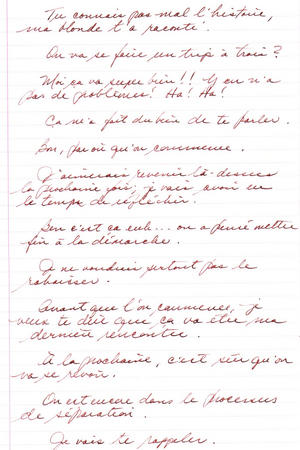 Tu connais pas mal l'histoire,
ma blonde t'a raconté.
On va se faire un trip à trois?
Moi, ça va super bien!! Y en n'a
pas de problèmes! Ha! Ha!
Ça m'a fait du bien de te parler.
Bon, par où qu'on commence.
J'aimerais revenir là-dessus
la prochaine fois; je vais avoir eu
le temps de réfléchir.
Ben c'est ça euh... on a pensé mettre
fin à la démarche.
Je ne voudrais surtout pas le
rabaisser.
Avant que l'on commence, je
veux te dire que ça va être ma
dernière rencontre.
À la prochaine, c'est sûr qu'on
va se revoir.
On est encore dans le processus
de séparation.
Je vais te rappeler.